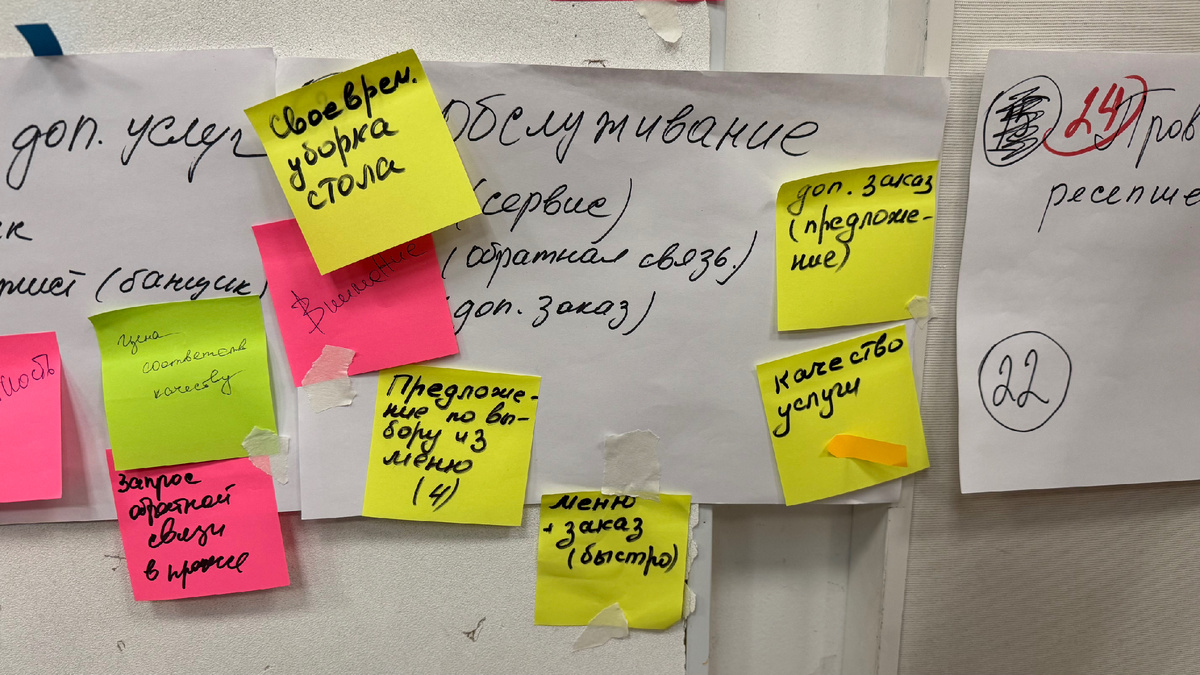 доп. услуг
(банщик)
Своеврем.
уборка
стола
Обслуживание
(сервис)
(обратная связь.)
доп. заказ)
Внимание
цена
соответств
качеству
Запрос
обратной
связи
в
Предложе-
ние по вы-
бору из
меню
(4)
меню
+ заказ
(быстро)
доп. заказ
(предложе-
ние)
качество
услуги
24 Пров
ресепше
22